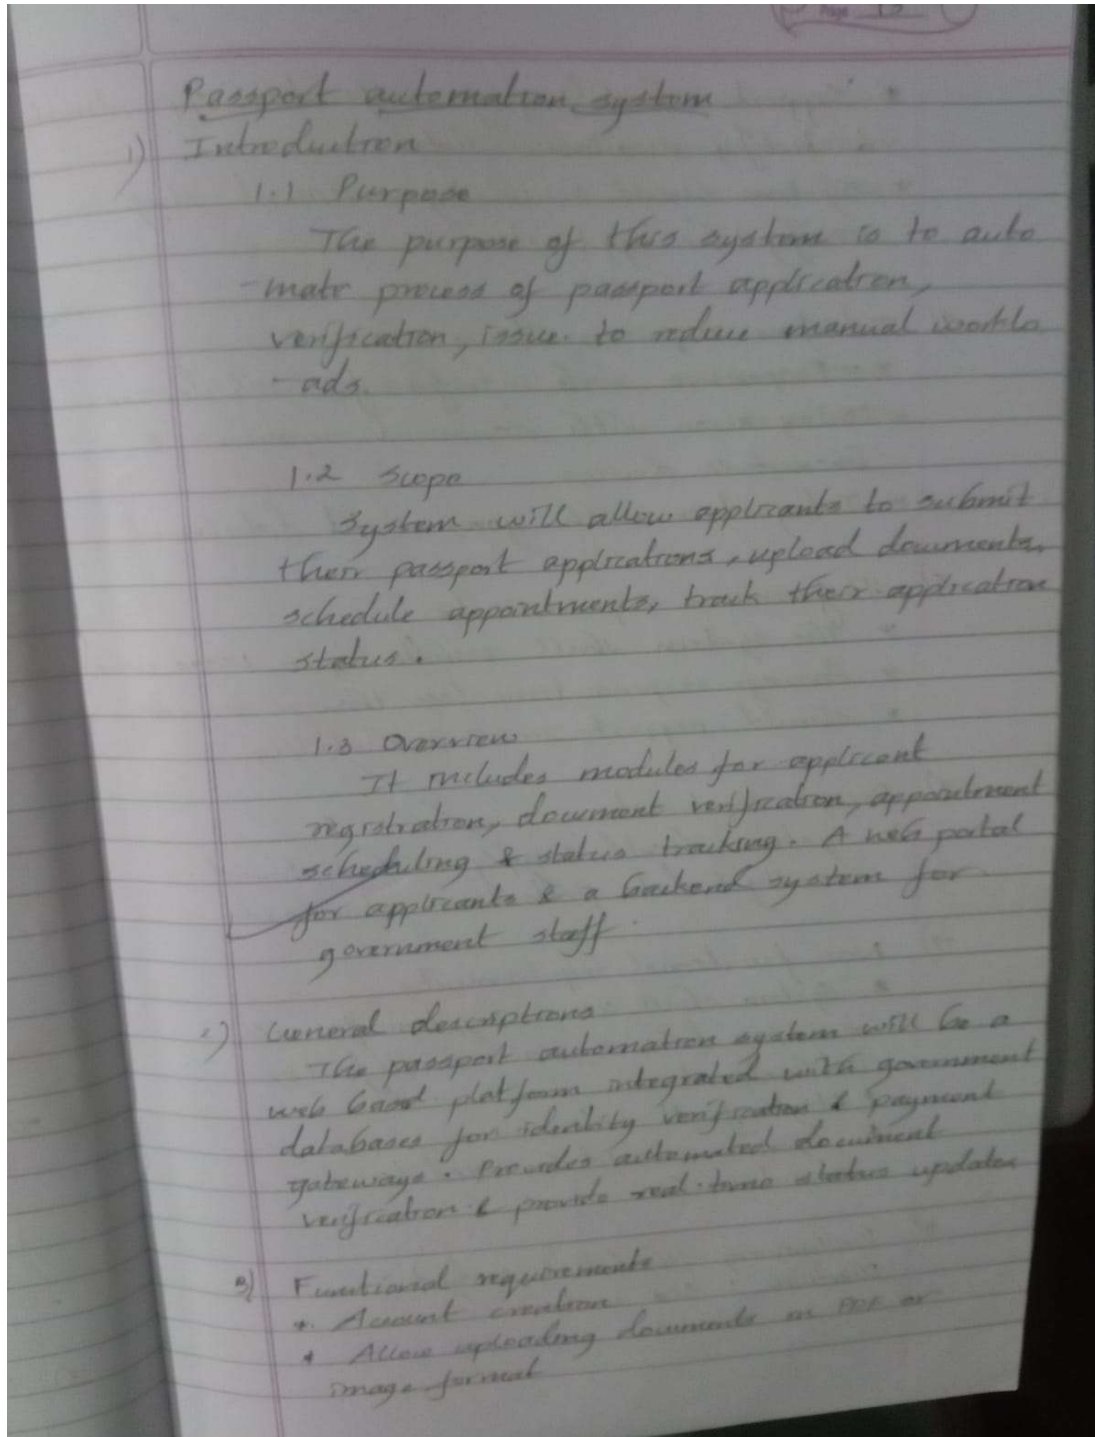 Page 15
Passport automation system
1) Introduction
1.1 Purpose
The purpose of this system is to auto
-mate process of passport application,
verification, issue to reduce manual worklo
-ads.
1.2 Scope
System will allow applicants to submit
their passport applications, upload documents,
schedule appointments, track their application
status.
1.3 Overview
It includes modules for applicant
registration, document verification, appointment
scheduling & status tracking. A web portal
for applicants & a backend system for
government staff.
2) General descriptions
The passport automation system will be a
web based platform integrated with government
databases for identity verification & payment
gateways. Provides automated document
verification & provide real-time status updates
3) Functional requirements
* Account creation
* Allow uploading documents in PDF or
image format